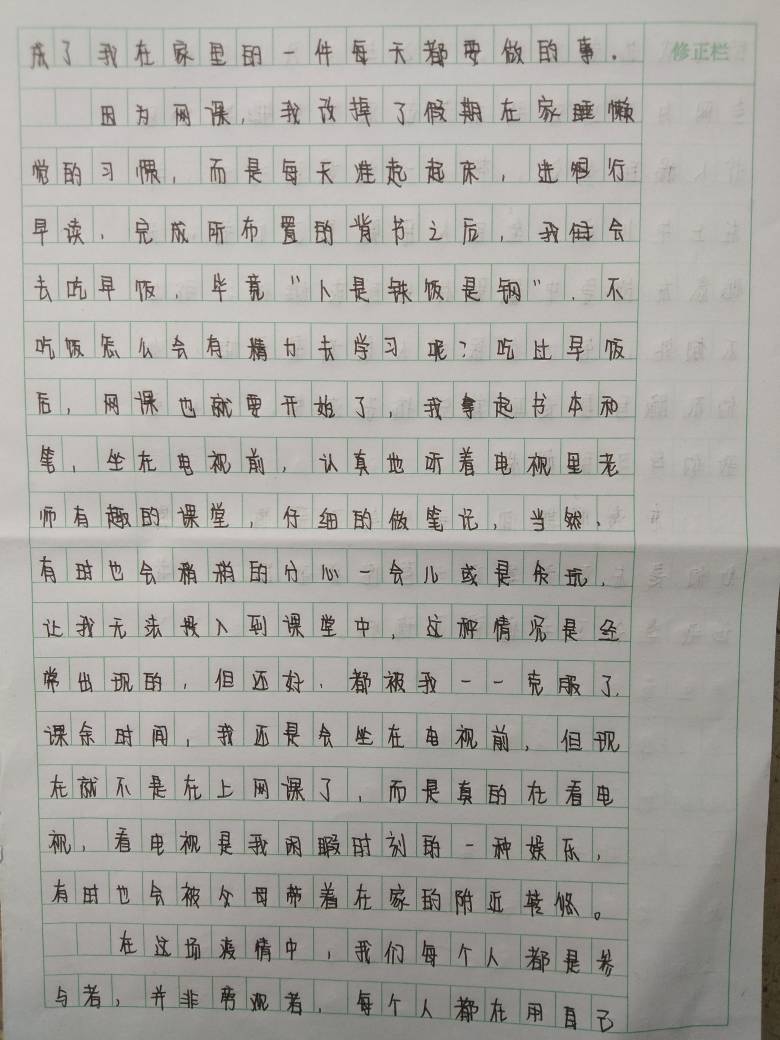 成了我在家里的一件每天都要做的事.
修正栏
因为网课,我改掉了假期在家睡懒
觉的习惯,而是每天准起起床,进行
早读.完成所布置的背书之后,我会
去吃早饭.毕竟"人是铁饭是钢".不
吃饭怎么会有精力去学习呢?吃过早饭
后,网课也就要开始了,我拿起书本和
笔,坐在电视前,认真地听着电视里老
师有趣的课堂,仔细的做笔记,当然.
有时也会稍稍的分心一会儿或是贪玩.
让我无法投入到课堂中,这种情况是经
常出现的,但还好.都被我一一克服了.
课余时间,我还是会坐在电视前,但现
在就不是在上网课了,而是真的在看电
视,看电视是我闲暇时刻的一种娱乐,
有时也会被父母带着在家的附近转悠。
在这场疫情中,我们每个人都是参
与者,并非旁观者,每个人都在用自己